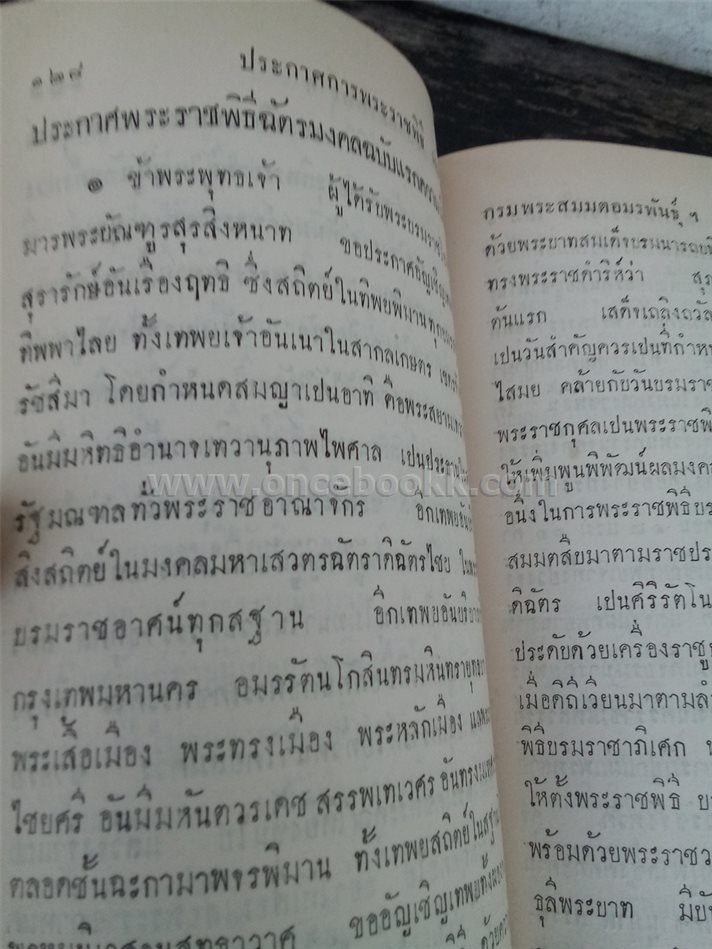 ๑๒๘
ประกาศการพระราชพิธี
ประกาศพระราชพิธีฉัตรมงคลฉบับแรก
๑ ข้าพระพุทธเจ้า ผู้ได้รับพระบรมราช
มารพระบัณฑูรสุรสิงหนาท ขอประกาศอัญเชิญ
สุรารักษ์อันเรืองฤทธิ ซึ่งสถิตย์ในทิพยพิมาน
ทิพพาไลย ทั้งเทพยเจ้าอันเนาในสากลเกษตร
รัชสิมา โดยกำหนดสมญาเปนอาทิ คือพระสยาม
อันมีมหิทธิอำนาจเทวานุภาพไพศาล เปนประธาน
รัฐมณฑลทั่วพระราชอาณาจักร อิกเทพย
สิงสถิตย์ในมงคลมหาเสวตรฉัตราดิฉัตรไชย
บรมราชอาศน์ทุกสฐาน อิกเทพยอัน
กรุงเทพมหานคร อมรรัตนโกสินทรมหินทรายุทธยา
พระเสื้อเมือง พระทรงเมือง พระหลักเมือง
ไชยศรี อันมีมหันตวรเดช สรรพเทเวศร อันทรง
ตลอดชั้นฉะกามาพจรพิมาน ทั้งเทพยสถิตย์ใน
ขออัญเชิญเทพยทั้ง
กรมพระสมมตอมรพันธุ์ ฯ
ด้วยพระบาทสมเด็จบรมนารถ
ทรงพระราชดำริห์ว่า
ต้นแรก เสด็จเถลิงถวัล
เปนวันสำคัญควรเปนที่กำห
ไสมย คล้ายกับวันบรมราช
พระราชกุศลเปนพระราชพิ
ให้เพิ่มพูนพิพัฒน์ผลมงค
อนึ่งในการพระราชพิธีบร
สมมตสืบมาตามราชปร
ดิฉัตร เปนศิริรัตโน
ประดับด้วยเครื่องราชู
เมื่อดิถีเวียนมาตามลำ
พิธีบรมราชาภิเศก
ให้ตั้งพระราชพิธี
พร้อมด้วยพระราชว
ธุลีพระบาท มีบั
www.oncebookk.com